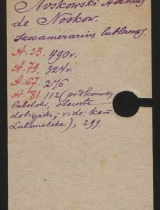 Noskowski Adamus
de Noskow.
Succamerarius lublinens.
A. 23. 490v.
A. 79. 324v.
A. 67. 276
A. 81. 112 (podkomorz.
lubelski, starosta
vide kan.
Lubomelska), 299